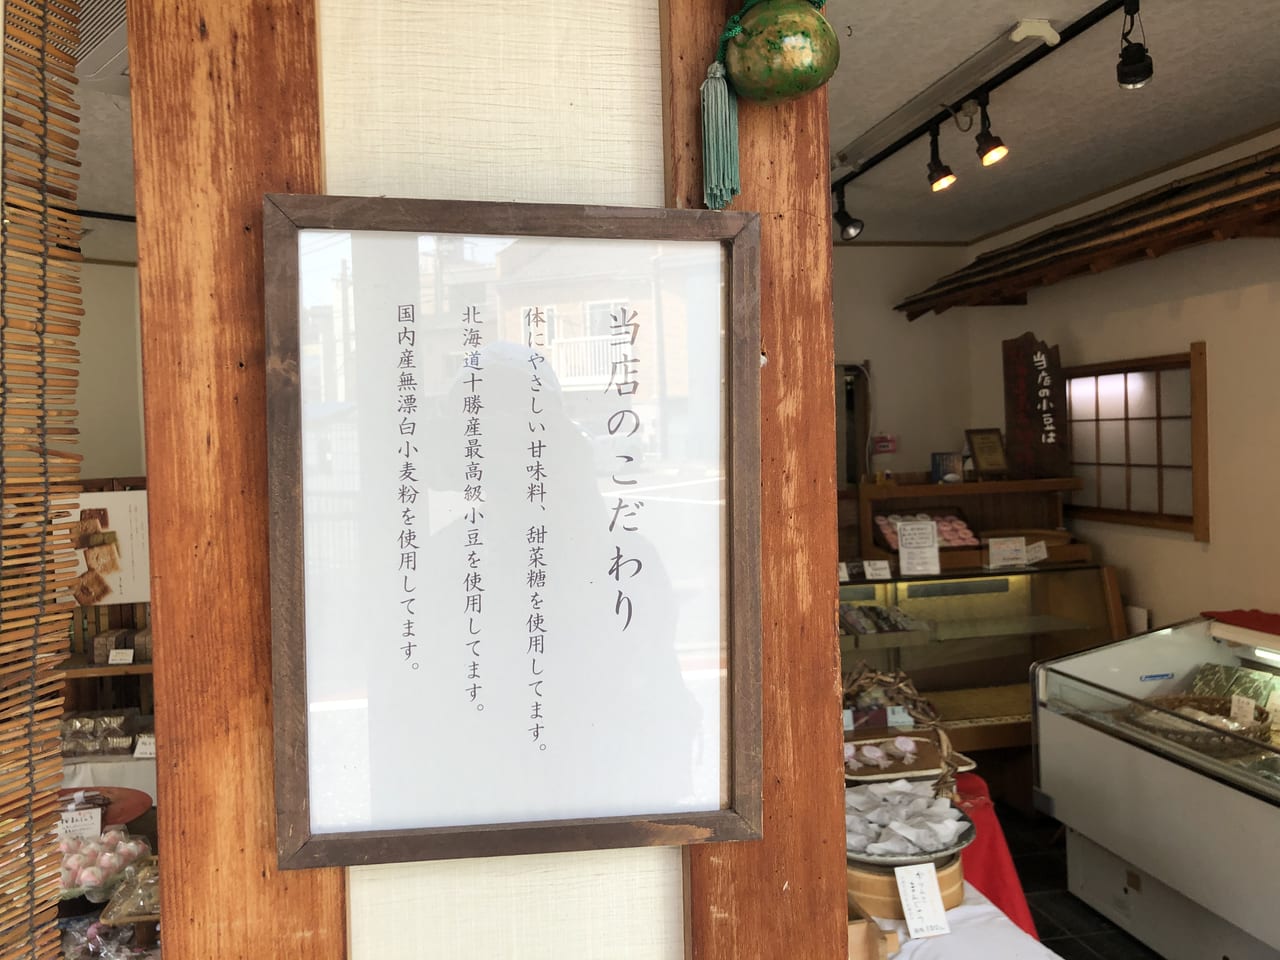 当店のこだわり
体にやさしい甘味料、甜菜糖を使用してます。
北海道十勝産最高級小豆を使用してます。
国内産無漂白小麦粉を使用してます。
当店の小豆は